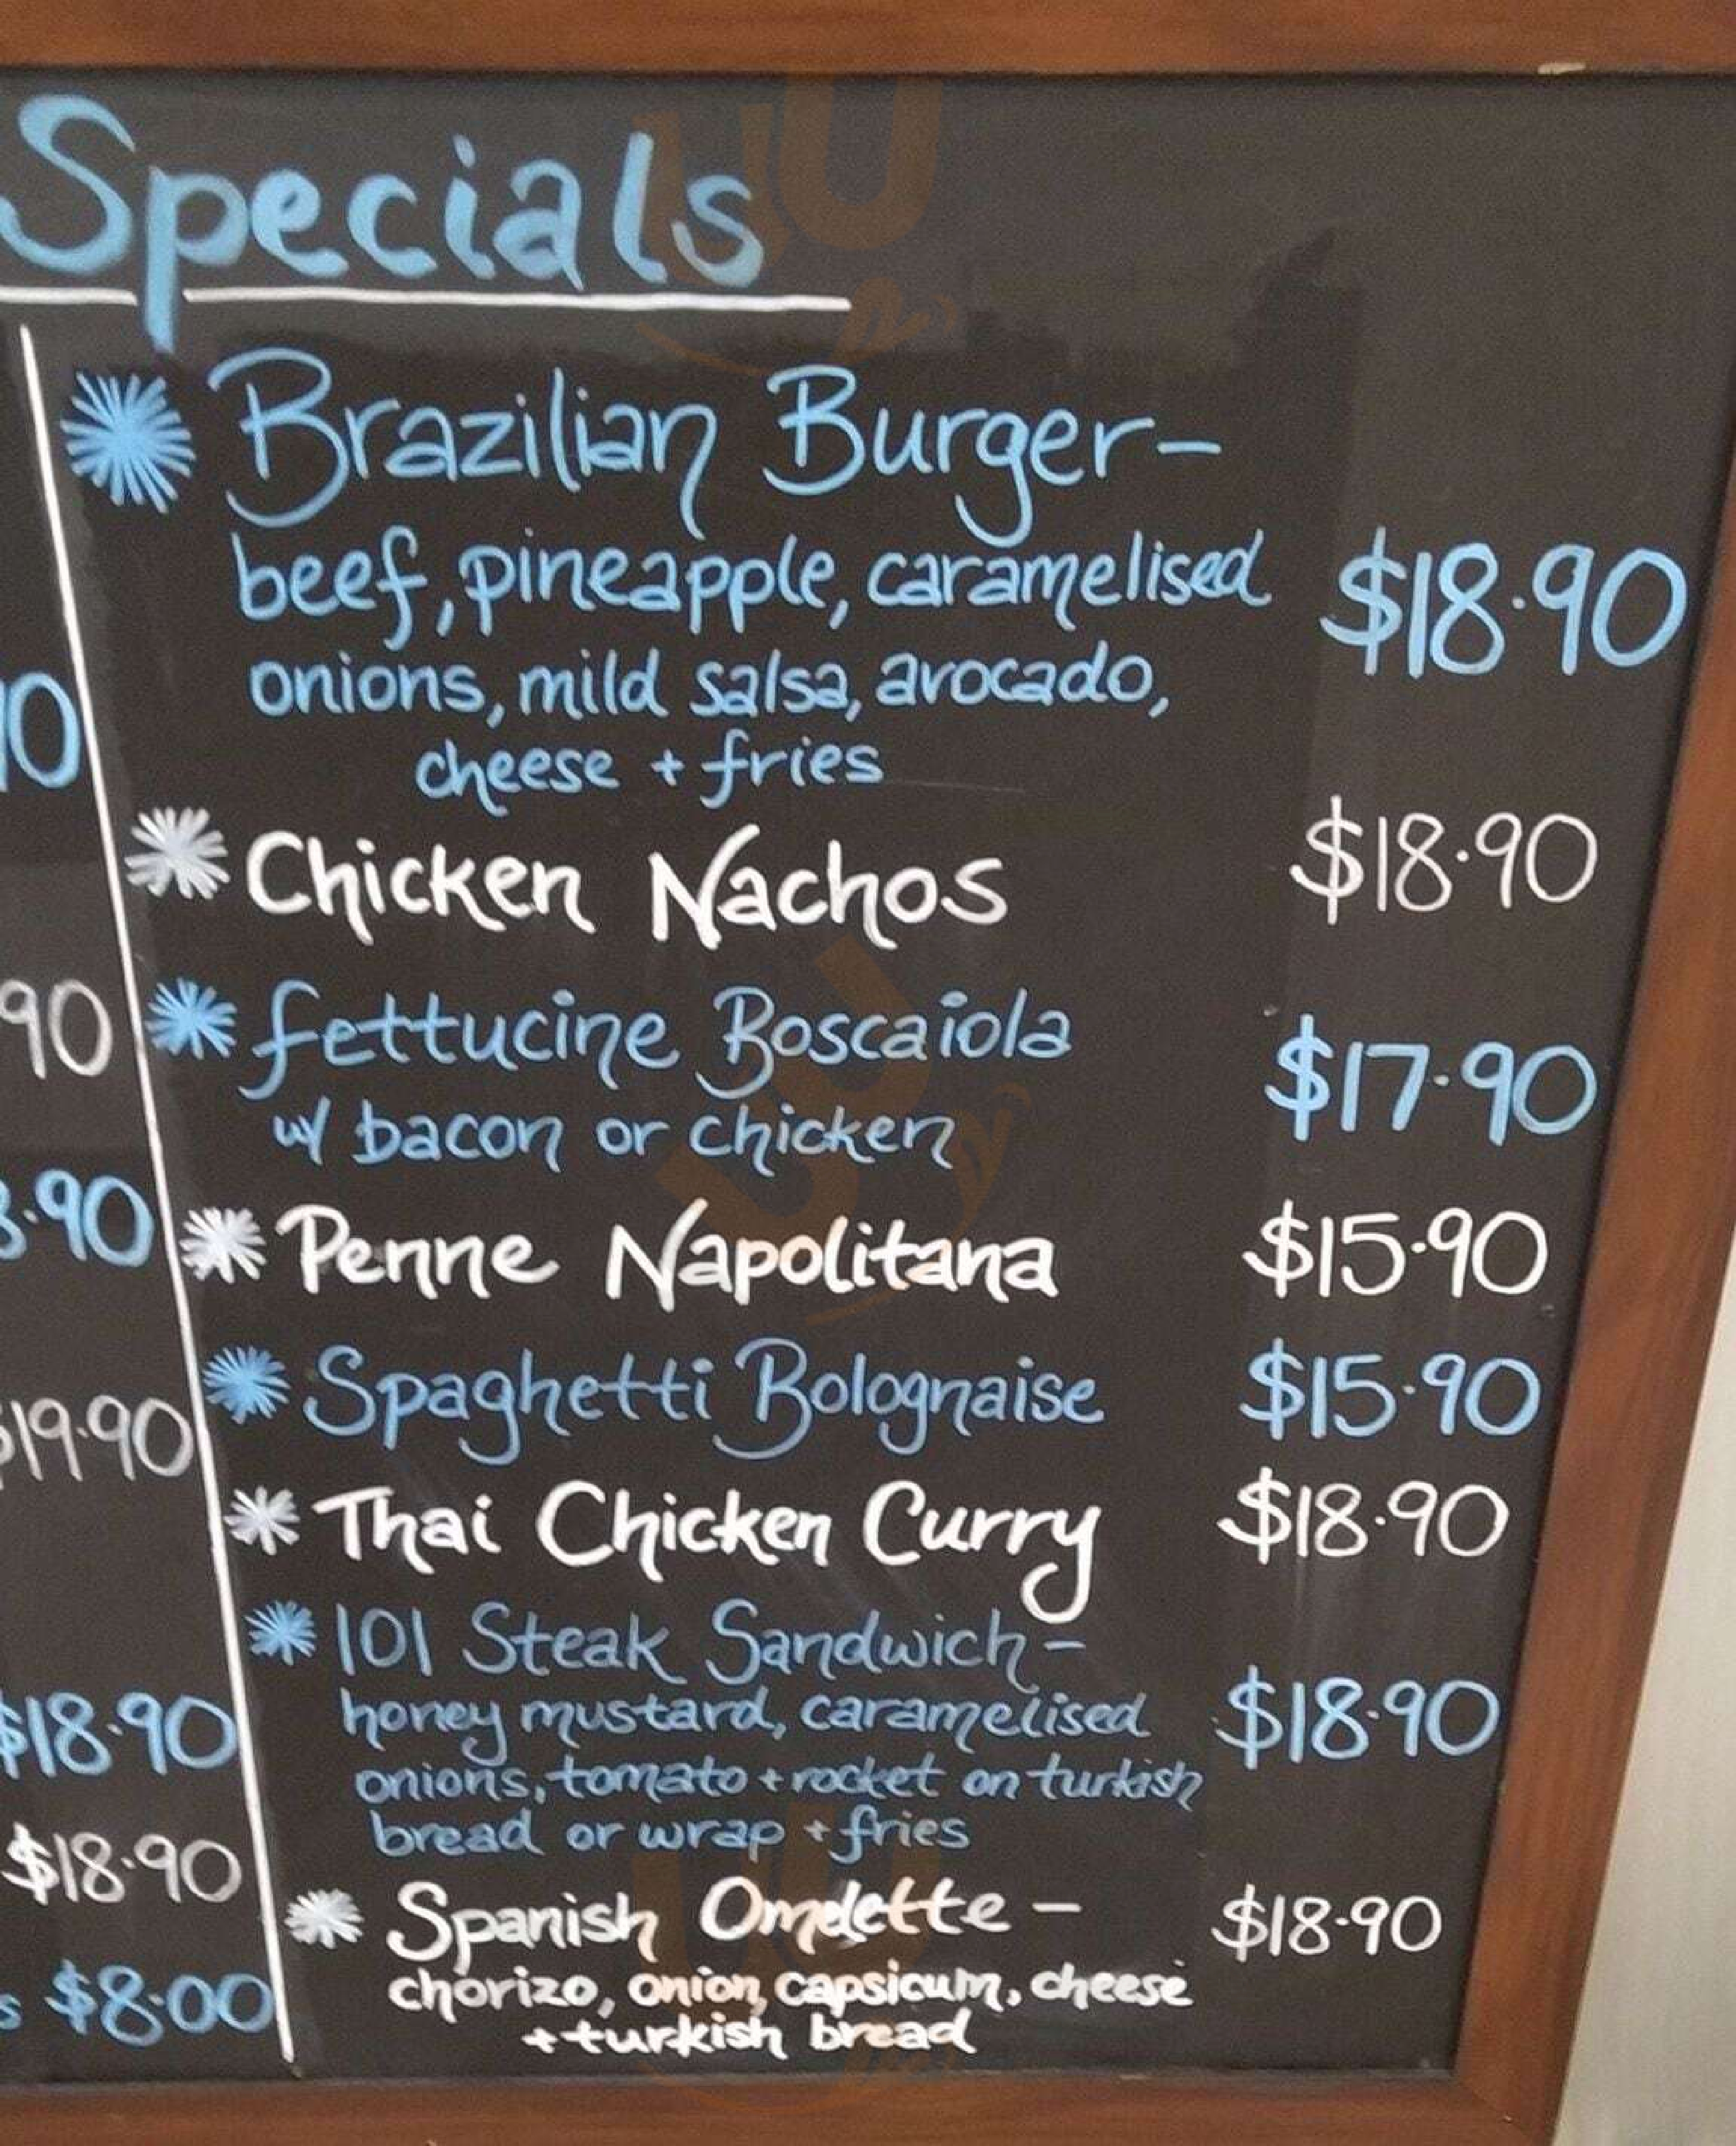 Specials
Brazilian Burger-
beef, pineapple, caramelised
onions, mild salsa, avocado,
cheese + fries
$18.90
Chicken Nachos $18.90
fettucine Boscaiola
w/ bacon or chicken
$17.90
Penne Napolitana $15.90
Spaghetti Bolognaise $15.90
Thai Chicken Curry $18.90
101 Steak Sandwich-
honey mustard, caramelised
onions, tomato + rocket on turkish
bread or wrap + fries
$18.90
Spanish Omelette - $18.90
chorizo, onion, capsicum, cheese
+ turkish bread
90
.90
$19.90
$18.90
$18.90
s $8.00